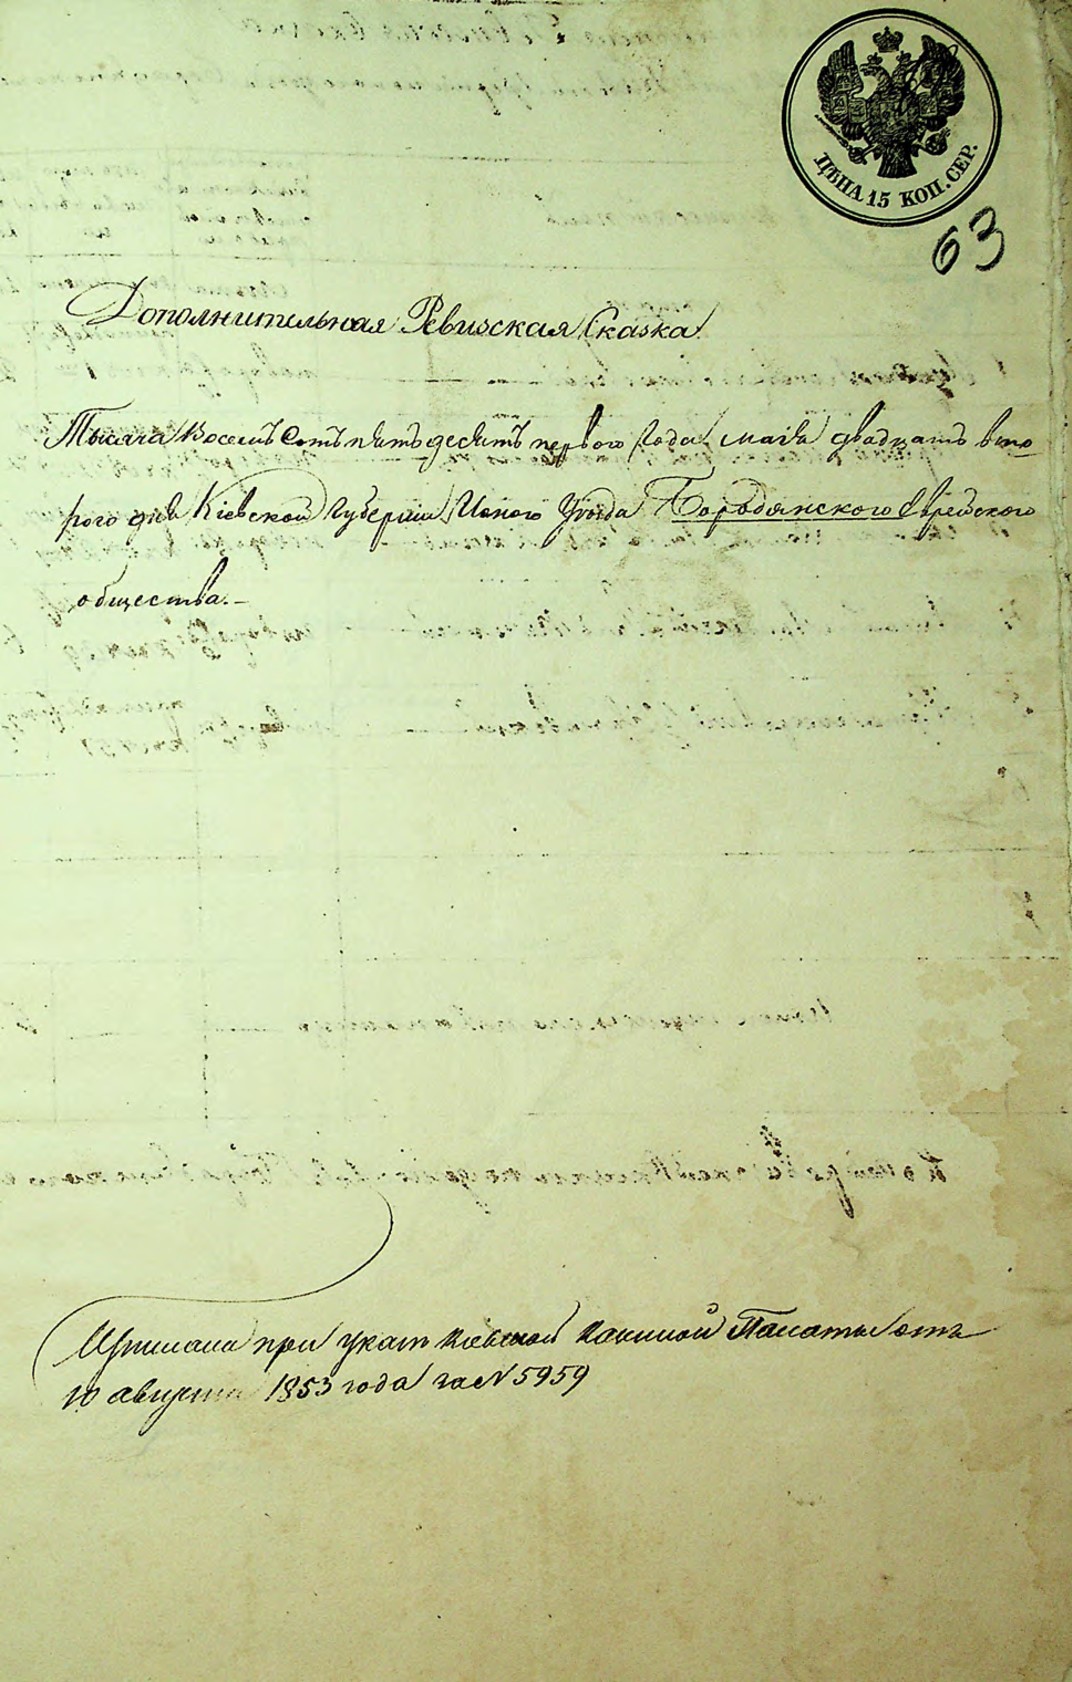 ЦѢНА 15 КОП. СЕР.
63
Дополнительная Ревизская Сказка
Тысяча восемъ сотъ пятьдесятъ первого года маія двадцать вто
рого дня Кіевской губерніи, Уѣзда Бородянского Еврейского
общества.
при указѣ Казенной Палаты отъ
10 августа 1853 года за № 5959